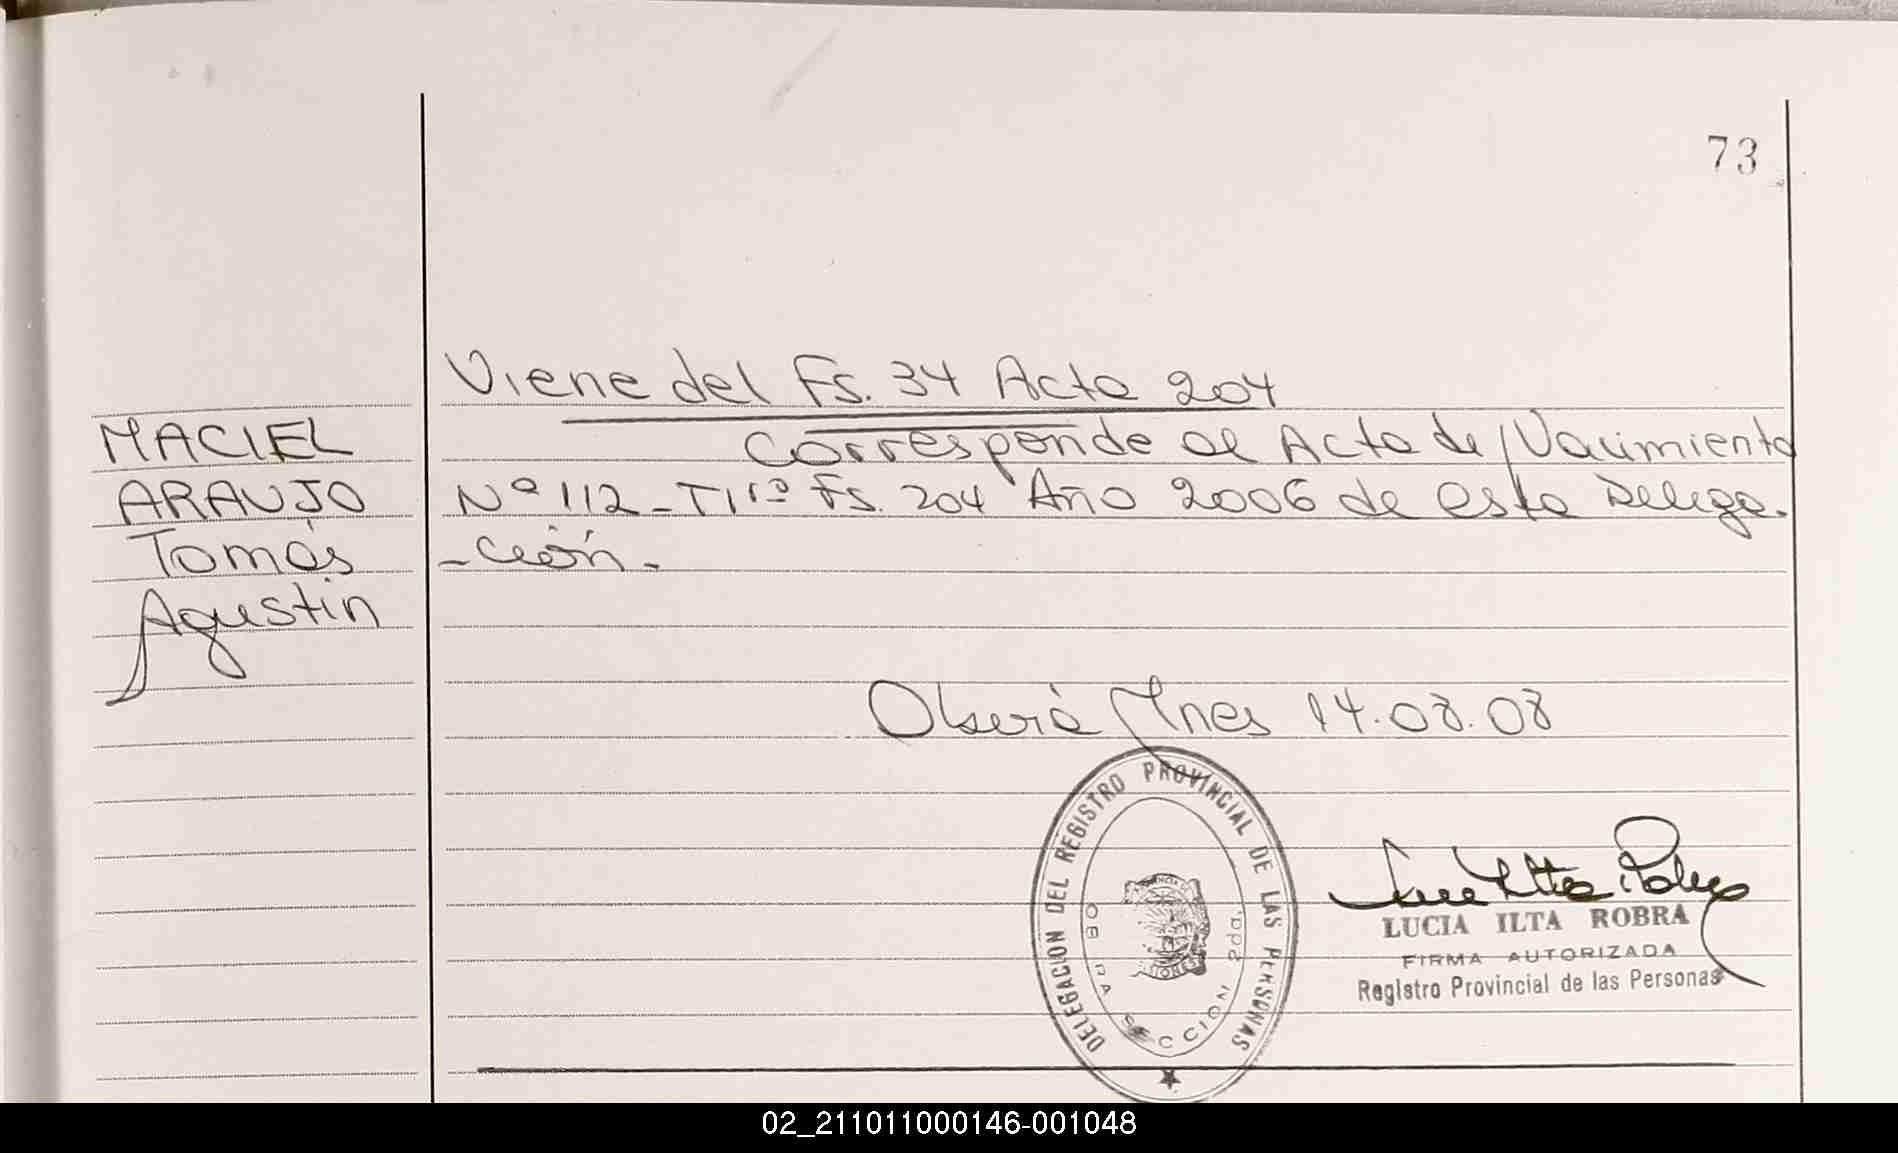 73
Viene del Fs. 34 Acta 204
MACIEL
ARAUJO
Tomás
Agustin
Corresponde al Acta de Nacimiento
Nº 112 - Fs. 204 Año 2006 de esta Delega-
-ción.-
Oberá Mnes 14.08.08
DELEGACION DEL REGISTRO PROVINCIAL DE LAS PERSONAS
OBERA SECCION 2da.
LUCIA ILTA ROBRA
FIRMA AUTORIZADA
Registro Provincial de las Personas
02_211011000146-001048